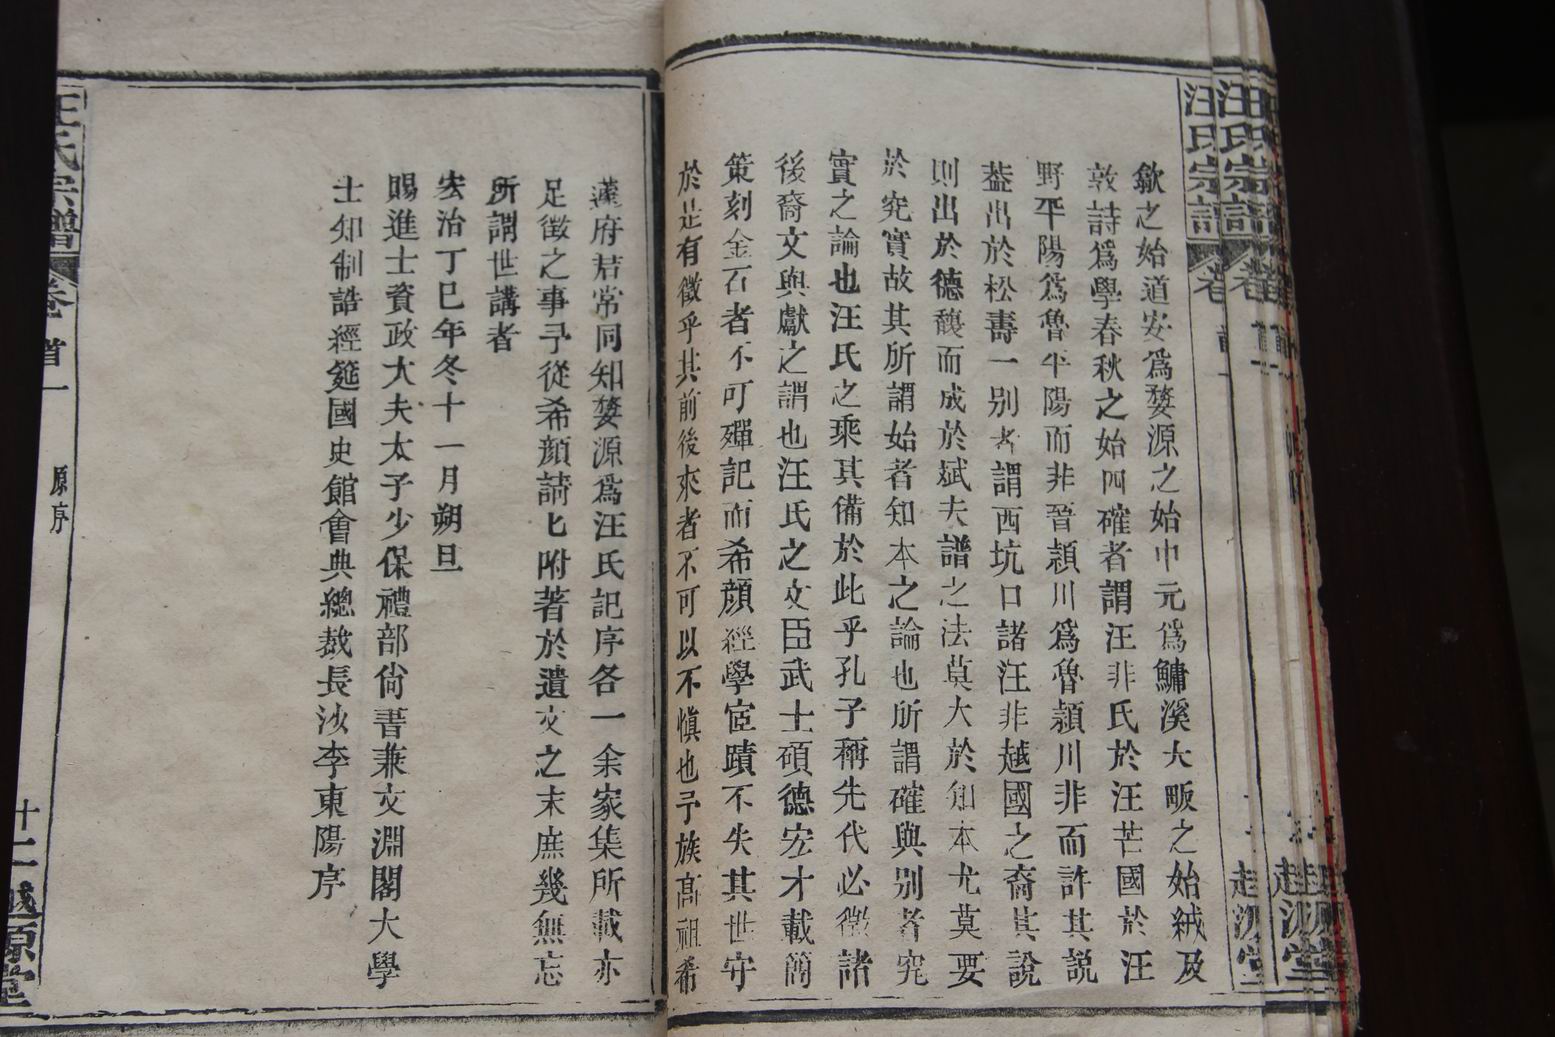 汪氏宗譜 卷
越源堂
歙之始道安爲婺源之始中元爲鱅溪大畈之始絨及
敦詩爲學春秋之始四確者謂汪非氏於汪芒國於汪
野平陽爲魯平陽而非晉潁川爲魯潁川非而許其說
葢出於松壽一別者謂西坑口諸汪非越國之裔其說
則出於德馥而成於斌夫譜之法莫大於知本尤莫要
於究實故其所謂始者知本之論也所謂確與別者究
實之論也汪氏之乘其備於此乎孔子稱先代必徵諸
後裔文與獻之謂也汪氏之文臣武士碩德宏才載簡
策刻金石者不可殫記而希顔經學宦蹟不失其世守
於是有徵乎其前後來者不可以不愼也予族高祖希
蘧府君常同知婺源爲汪氏記序各一余家集所載亦
足徵之事予從希顔請匕附著於遺文之末庶幾無忘
所謂世講者
宏治丁巳年冬十一月朔旦
賜進士資政大夫太子少保禮部尙書兼文淵閣大學
士知制誥經筵國史館會典總裁長沙李東陽序
汪氏宗譜 卷首一 原序 十二 越源堂